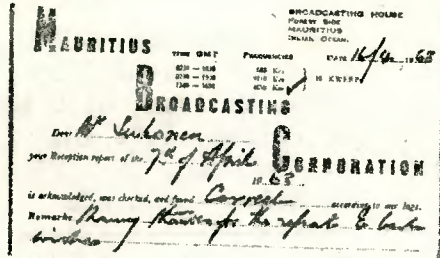 BROADCASTING HOUSE
FOREST SIDE
MAURITIUS
INDIAN OCEAN.
MAURITIUS
TIME GMT FREQUENCIES DATE 16/4/1965
BROADCASTING
Dear Mr
your Reception report of the 7th of April
1965
CORPORATION
is acknowledged, was checked, and found Correct according to our logs.
Remarks Many thanks for the report & best
wishes